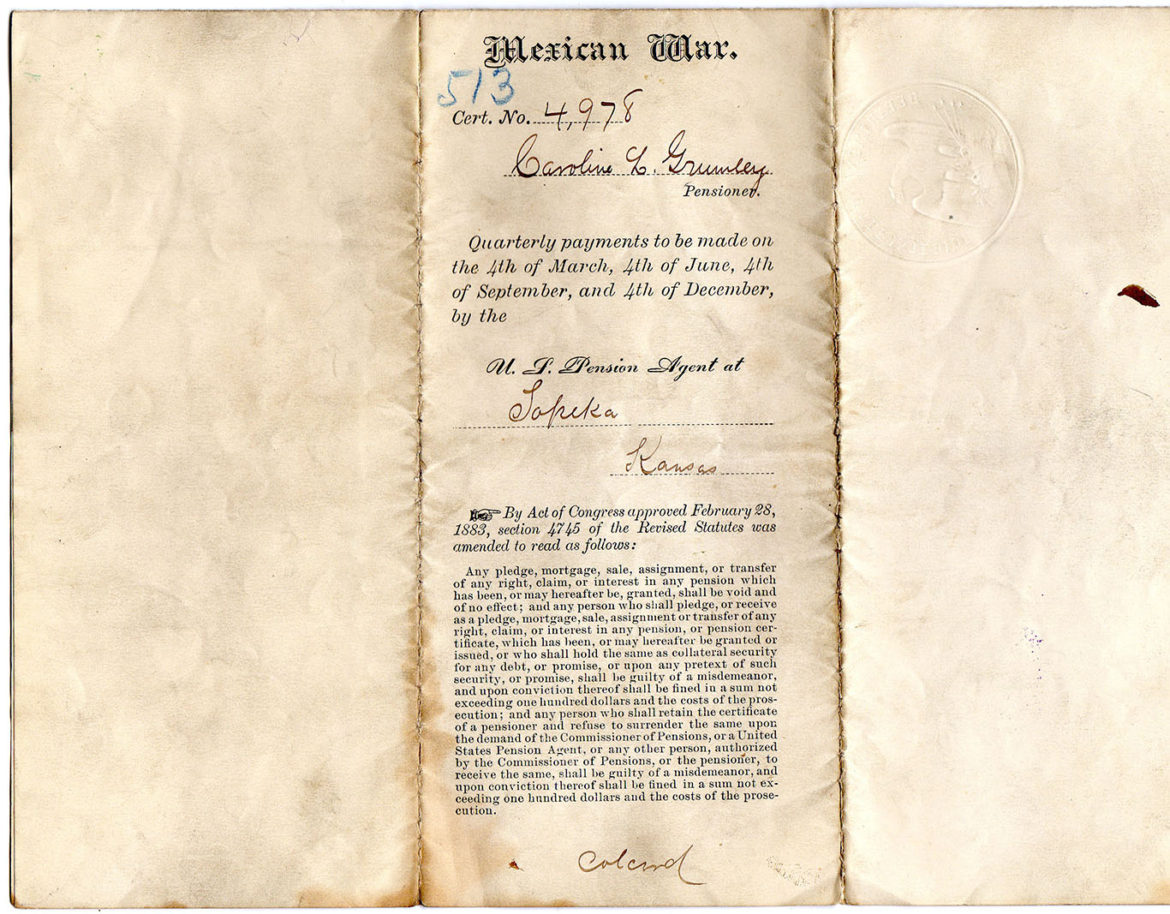 Mexican War.
513
Cert. No. 4,978
Caroline L. Grumley
Pensioner.
Quarterly payments to be made on
the 4th of March, 4th of June, 4th
of September, and 4th of December,
by the
U. S. Pension Agent at
Topeka
Kansas
By Act of Congress approved February 28,
1883, section 4745 of the Revised Statutes was
amended to read as follows:
Any pledge, mortgage, sale, assignment, or transfer
of any right, claim, or interest in any pension which
has been, or may hereafter be, granted, shall be void and
of no effect; and any person who shall pledge, or receive
as a pledge, mortgage, sale, assignment or transfer of any
right, claim, or interest in any pension, or pension cer-
tificate, which has been, or may hereafter be granted or
issued, or who shall hold the same as collateral security
for any debt, or promise, or upon any pretext of such
security, or promise, shall be guilty of a misdemeanor,
and upon conviction thereof shall be fined in a sum not
exceeding one hundred dollars and the costs of the pros-
ecution; and any person who shall retain the certificate
of a pensioner and refuse to surrender the same upon
the demand of the Commissioner of Pensions, or a United
States Pension Agent, or any other person, authorized
by the Commissioner of Pensions, or the pensioner, to
receive the same, shall be guilty of a misdemeanor, and
upon conviction thereof shall be fined in a sum not ex-
ceeding one hundred dollars and the costs of the prose-
cution.